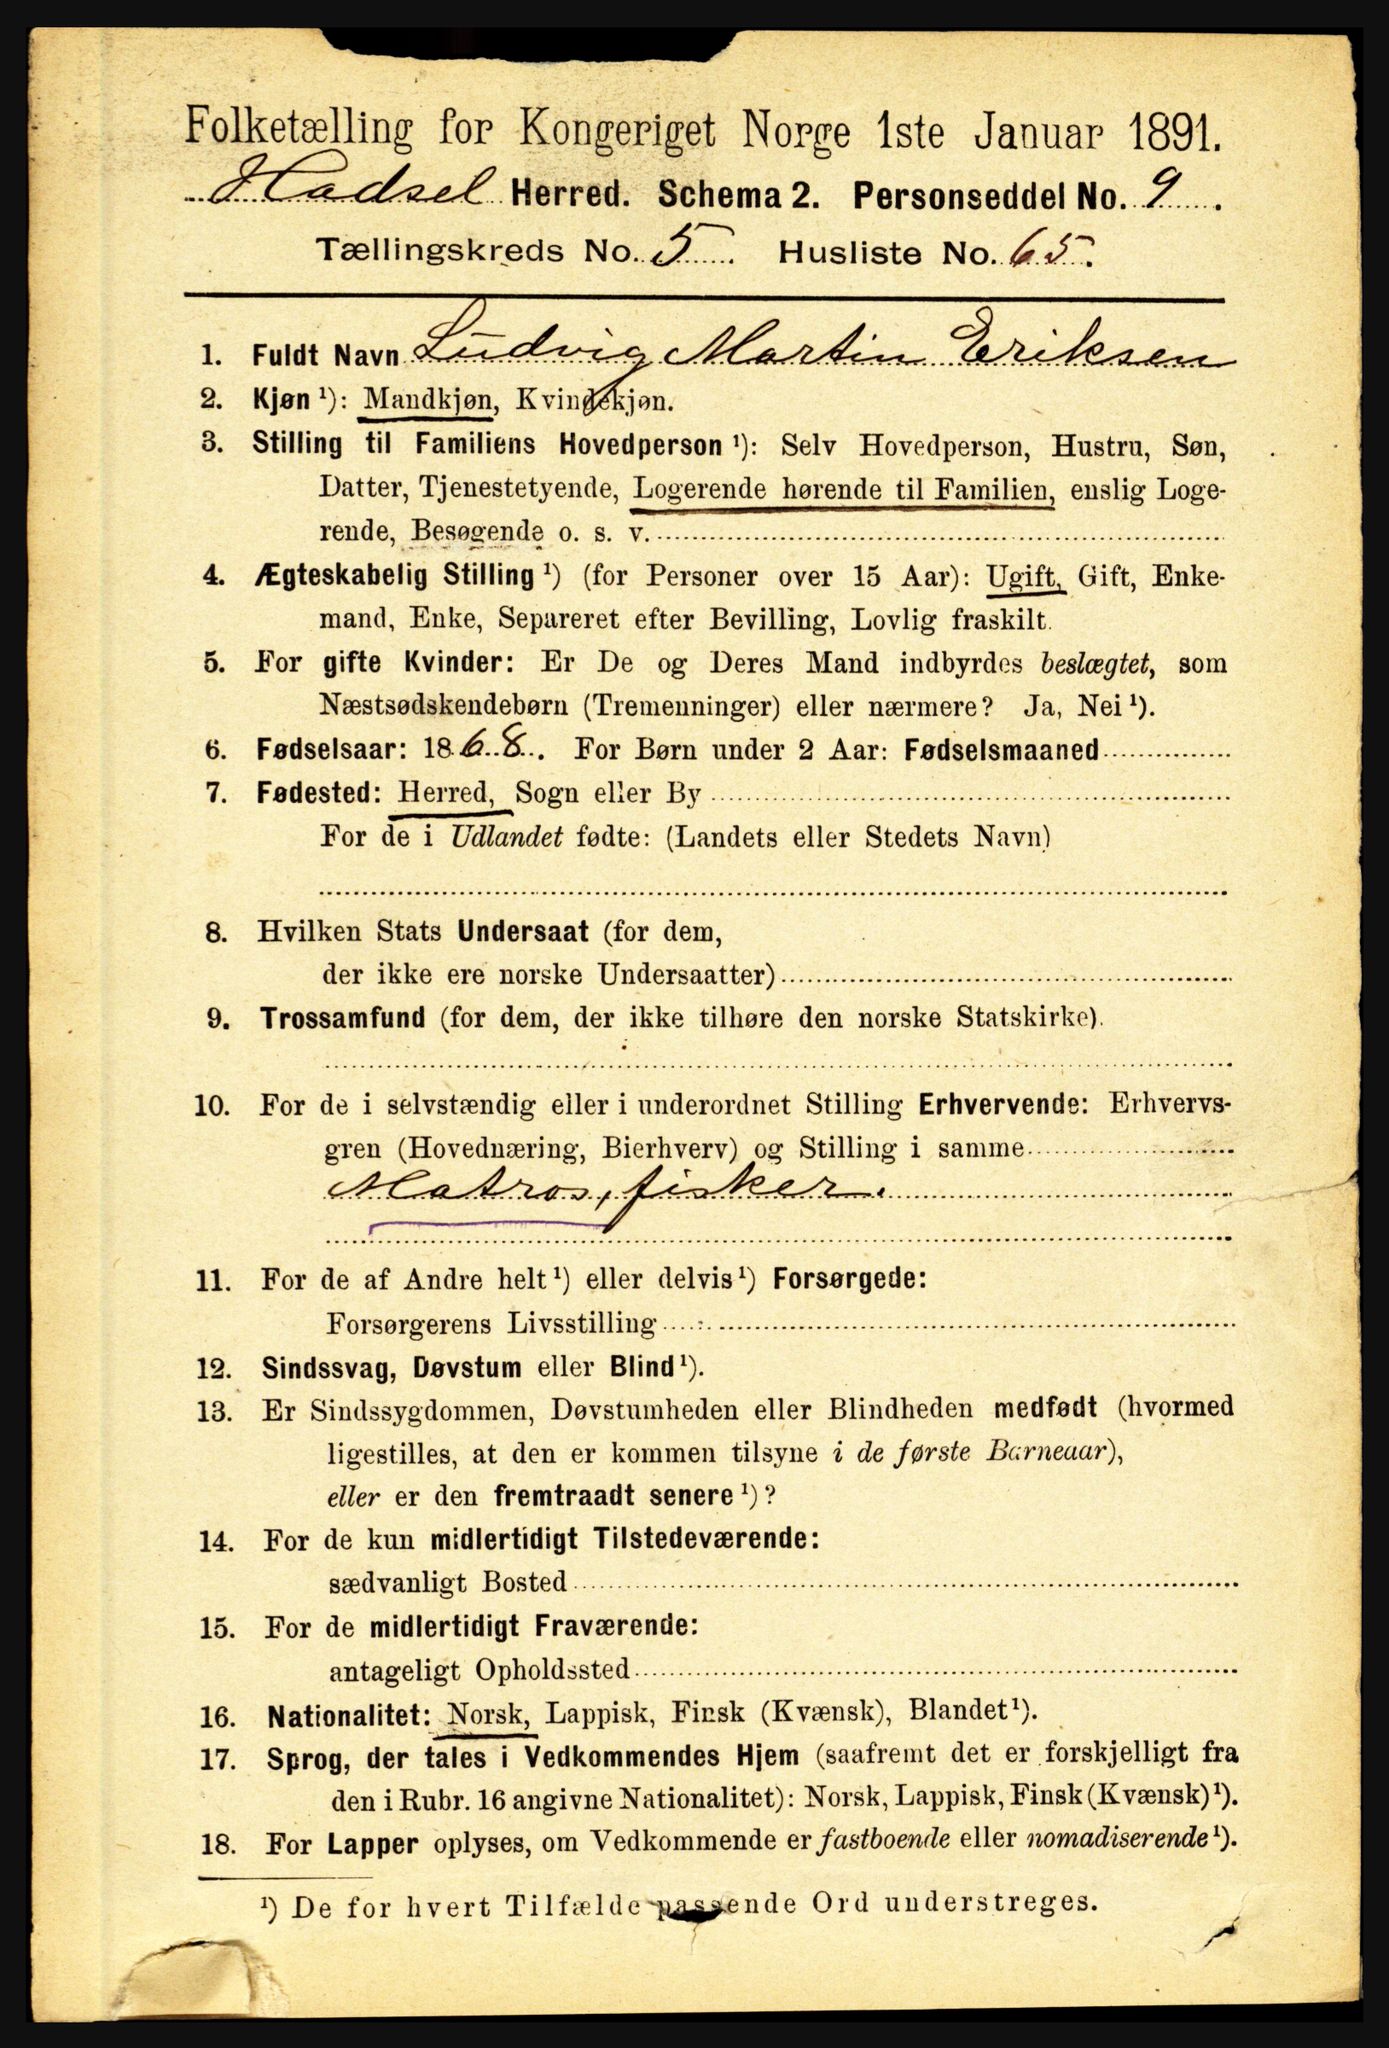 Folketælling for Kongeriget Norge 1ste Januar 1891.
Hadsel Herred. Schema 2. Personseddel No. 9.
Tællingskreds No. 5. Husliste No. 65.
1. Fuldt Navn Ludvig Martin Eriksen
2. Kjøn ¹): Mandkjøn, Kvindekjøn.
3. Stilling til Familiens Hovedperson ¹): Selv Hovedperson, Hustru, Søn,
Datter, Tjenestetyende, Logerende hørende til Familien, enslig Loge-
rende, Besøgende o. s. v.
4. Ægteskabelig Stilling ¹) (for Personer over 15 Aar): Ugift, Gift, Enke-
mand, Enke, Separeret efter Bevilling, Lovlig fraskilt.
5. For gifte Kvinder: Er De og Deres Mand indbyrdes beslægtet, som
Næstsødskendebørn (Tremenninger) eller nærmere? Ja, Nei ¹).
6. Fødselsaar: 1868. For Børn under 2 Aar: Fødselsmaaned
7. Fødested: Herred, Sogn eller By
For de i Udlandet fødte: (Landets eller Stedets Navn)
8. Hvilken Stats Undersaat (for dem,
der ikke ere norske Undersaatter)
9. Trossamfund (for dem, der ikke tilhøre den norske Statskirke).
10. For de i selvstændig eller i underordnet Stilling Erhvervende: Erhvervs-
gren (Hovednæring, Bierhverv) og Stilling i samme
Matros, fisker.
11. For de af Andre helt ¹) eller delvis ¹) Forsørgede:
Forsørgerens Livsstilling
12. Sindssvag, Døvstum eller Blind ¹).
13. Er Sindssygdommen, Døvstumheden eller Blindheden medfødt (hvormed
ligestilles, at den er kommen tilsyne i de første Barneaar),
eller er den fremtraadt senere ¹)?
14. For de kun midlertidigt Tilstedeværende:
sædvanligt Bosted
15. For de midlertidigt Fraværende:
antageligt Opholdssted
16. Nationalitet: Norsk, Lappisk, Finsk (Kvænsk), Blandet ¹).
17. Sprog, der tales i Vedkommendes Hjem (saafremt det er forskjelligt fra
den i Rubr. 16 angivne Nationalitet): Norsk, Lappisk, Finsk (Kvænsk) ¹).
18. For Lapper oplyses, om Vedkommende er fastboende eller nomadiserende ¹).
¹) De for hvert Tilfælde passende Ord understreges.